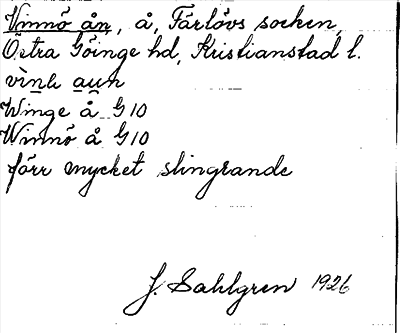 Vinnö ån, å, Färlövs socken,
Östra Göinge hd, Kristianstad l.
Winge å G10
Winnö å G10
förr mycket slingrande
J. Sahlgren 1926